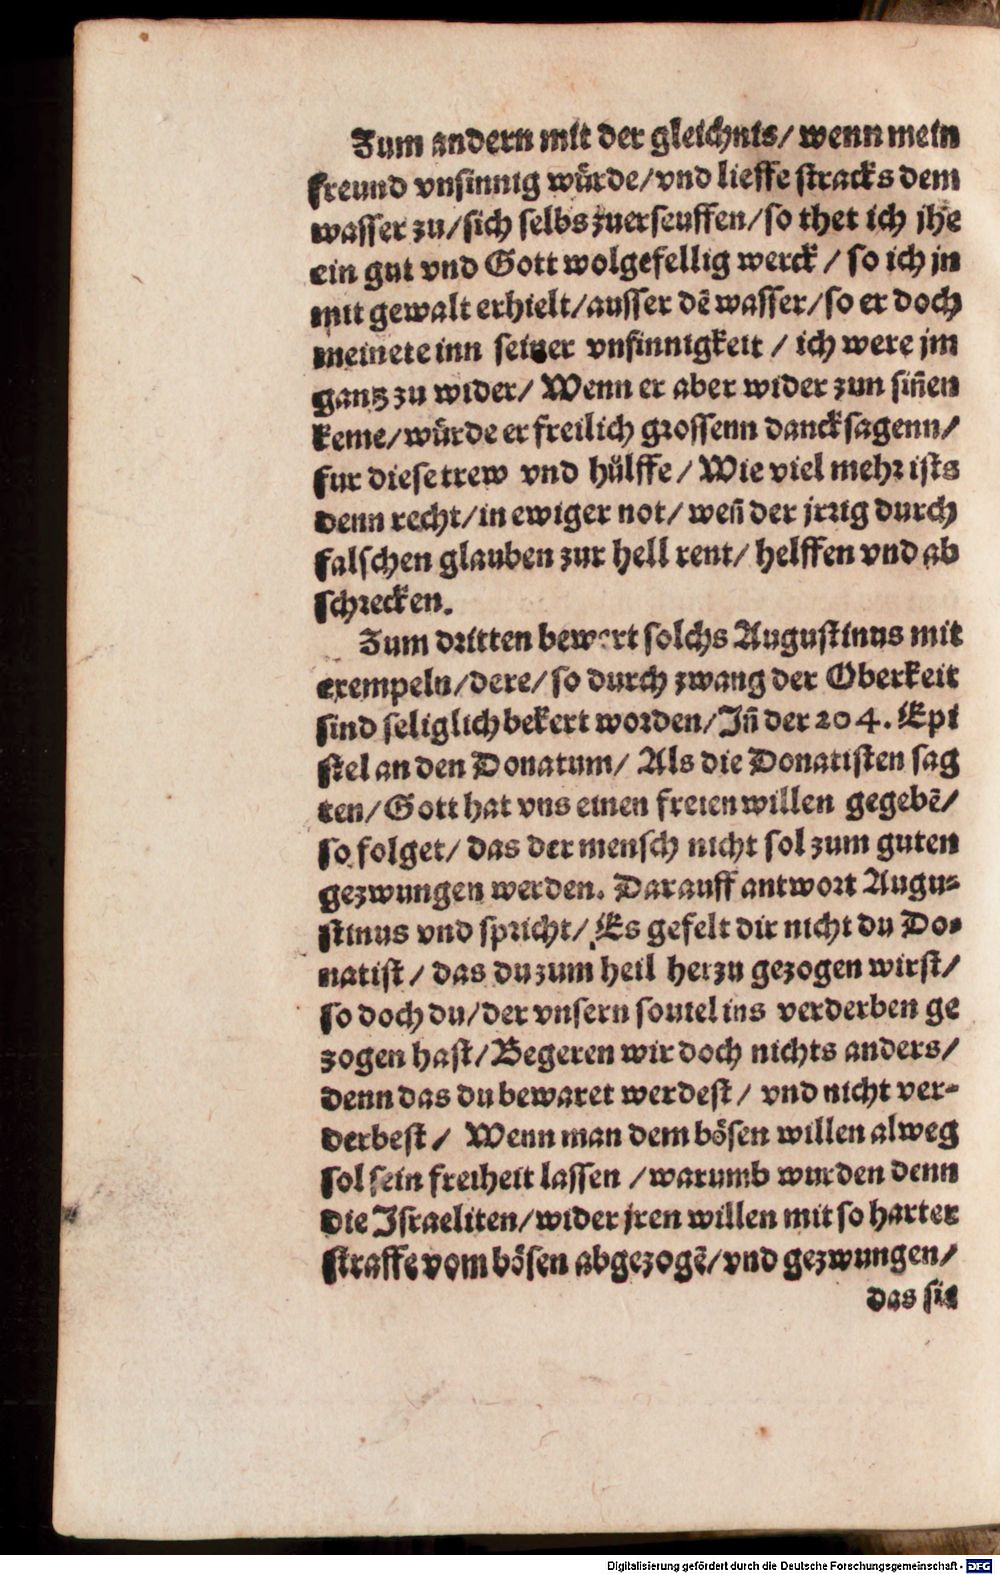 Zum andern mit der gleichnis/ wenn mein
freund vnsinnig würde/ vnd lieffe stracks dem
wasser zu/ sich selbs zuerseuffen/ so thet ich jhe
ein gut vnd Gott wolgefellig werck / so ich jn
mit gewalt erhielt/ ausser dē wasser/ so er doch
meinete inn seiner vnsinnigkeit / ich were jm
gantz zu wider/ Wenn er aber wider zun siñen
keme/ würde er freilich grossenn danck sagenn/
fur diese trew vnd hülffe / Wie viel mehr ists
denn recht/ in ewiger not/ weñ der jrrig durch
falschen glauben zur hell rent/ helffen vnd ab
schrecken.
Zum dritten bewert solchs Augustinus mit
exempeln/ dere/ so durch zwang der Oberkeit
sind seliglich bekert worden/ Jñ der 204. Epi
stel an den Donatum/ Als die Donatisten sag
ten/ Gott hat vns einen freien willen gegebē/
so folget/ das der mensch nicht sol zum guten
gezwungen werden. Darauff antwort Augu-
stinus vnd spricht/ Es gefelt dir nicht du Do-
natist / das du zum heil herzu gezogen wirst/
so doch du/ der vnsern souiel ins verderben ge
zogen hast/ Begeren wir doch nichts anders/
denn das du bewaret werdest / vnd nicht ver-
derbest / Wenn man dem bösen willen alweg
sol sein freiheit lassen / warumb wurden denn
die Israeliten/ wider jren willen mit so harter
straffe vom bösen abgezogē/ vnd gezwungen/
das sie
Digitalisierung gefördert durch die Deutsche Forschungsgemeinschaft - DFG